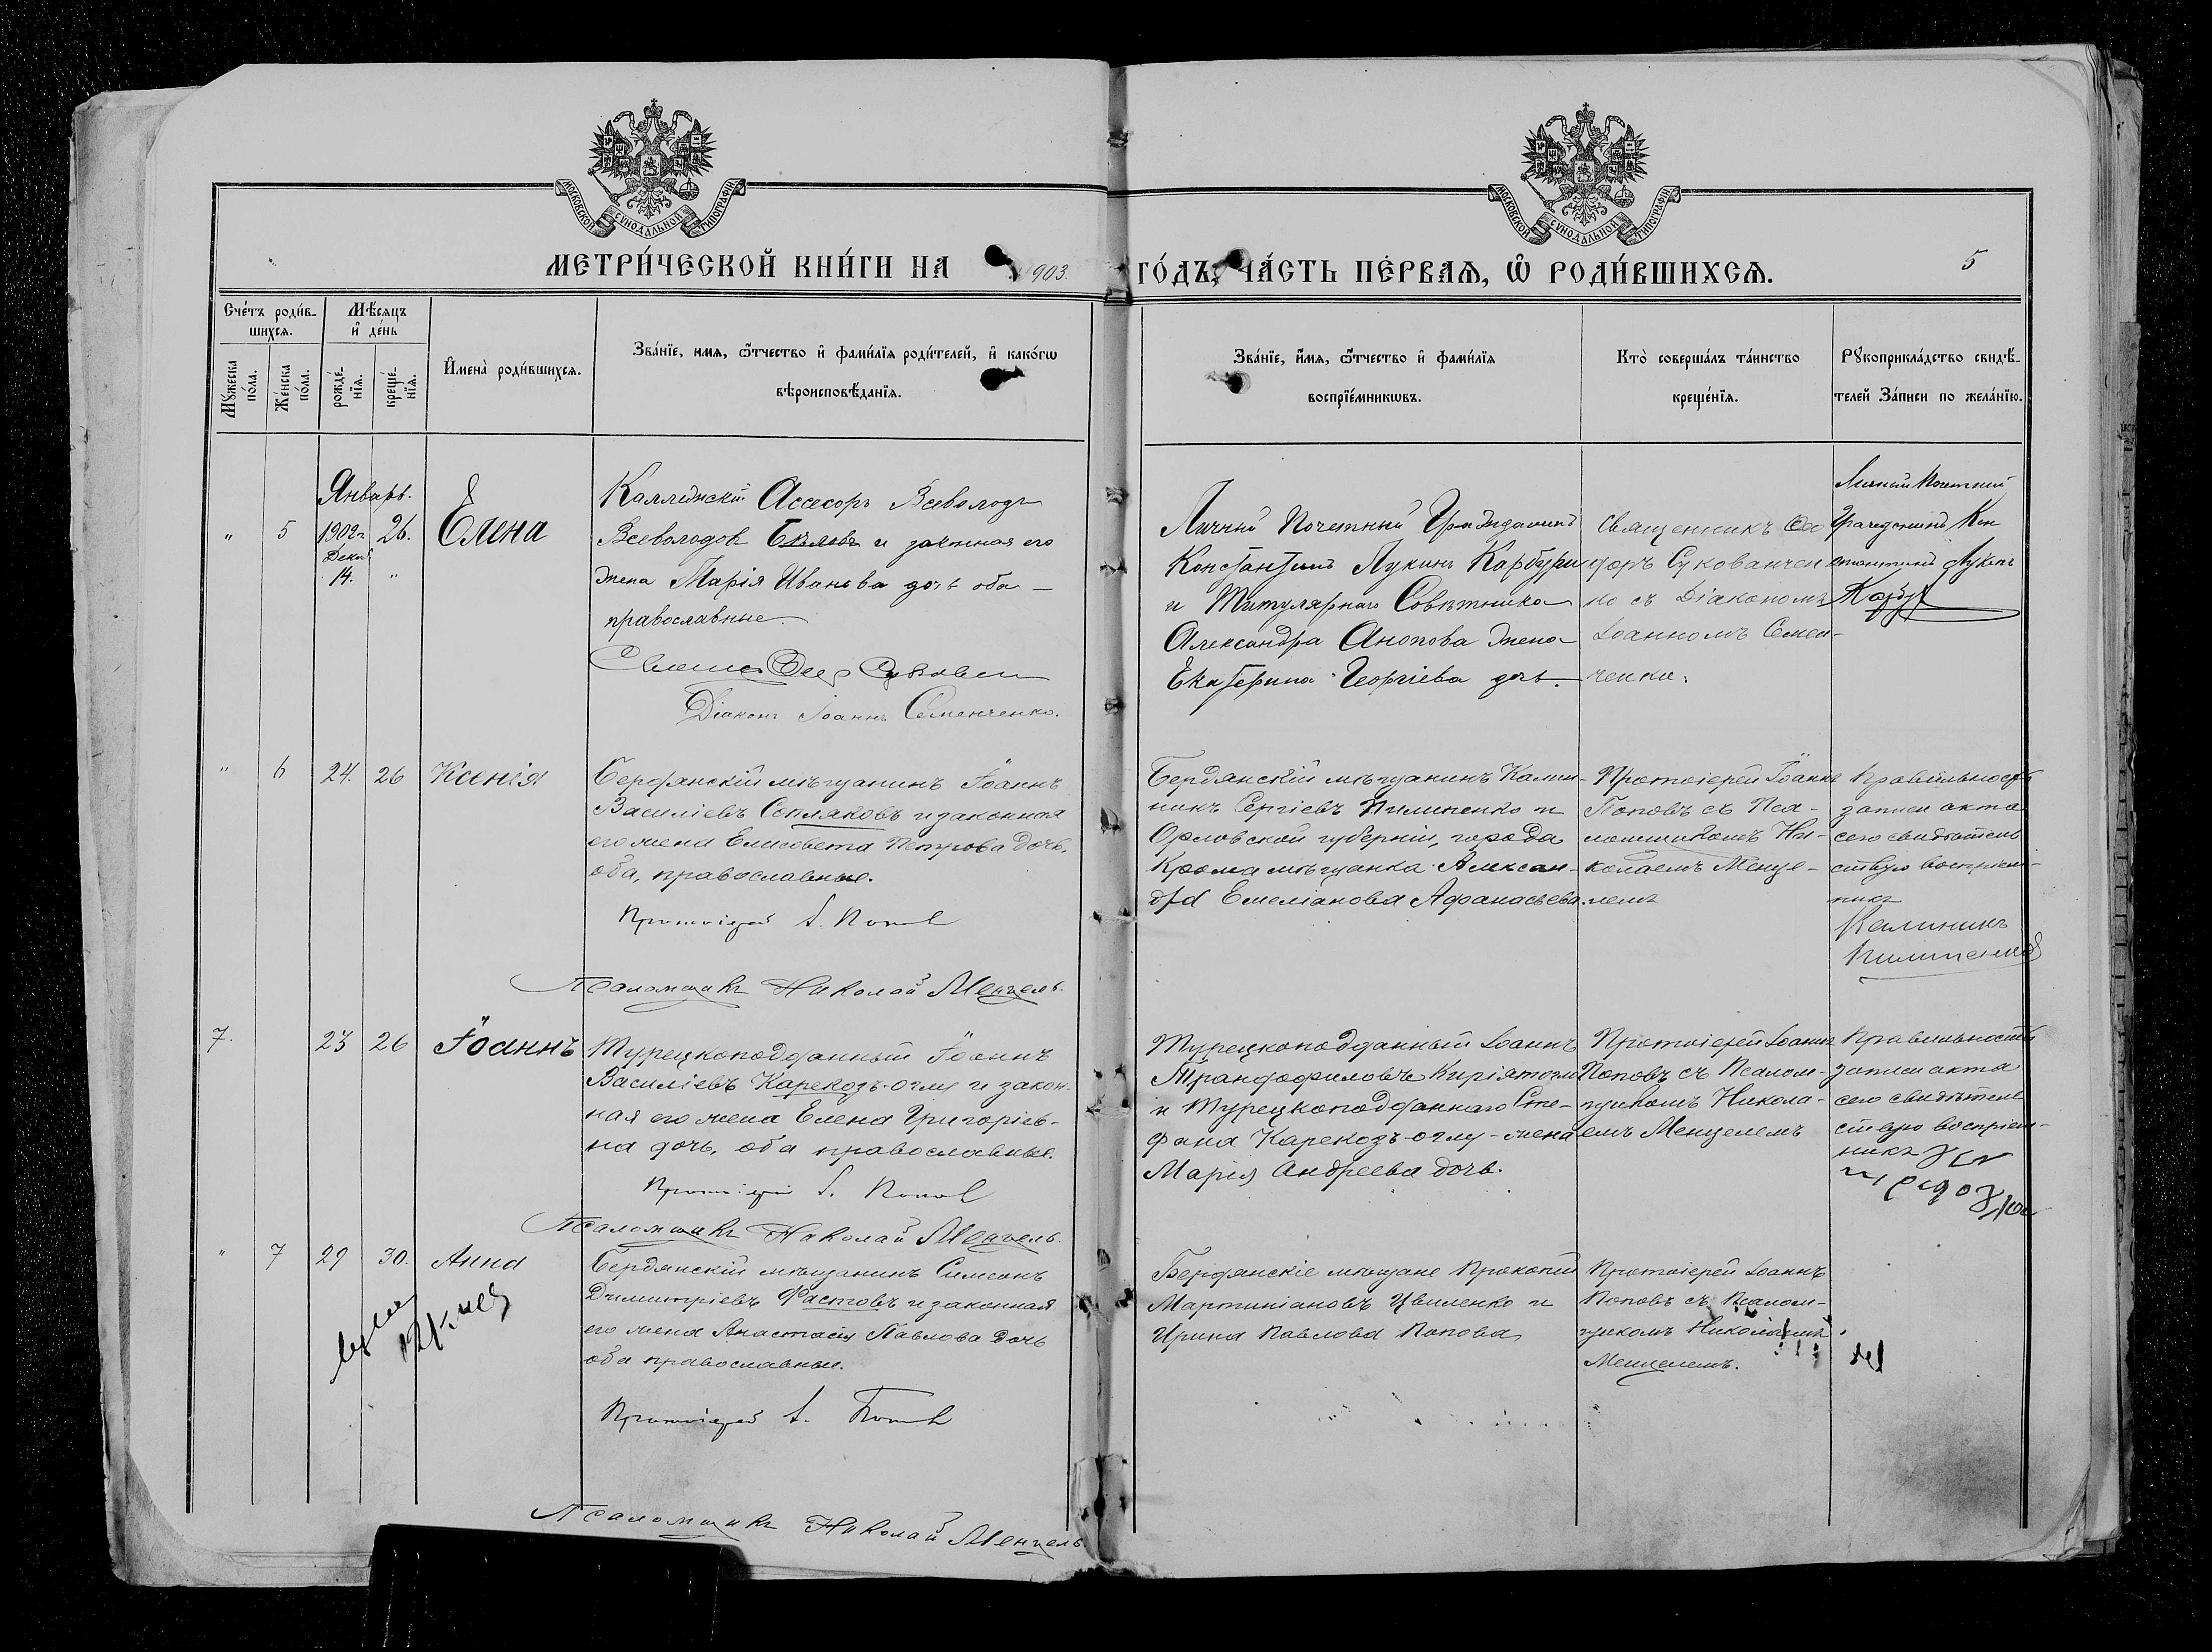 МОСКОВСКОЙ СѴНОДАЛЬНОЙ ТИПОГРАФІИ
МОСКОВСКОЙ СѴНОДАЛЬНОЙ ТИПОГРАФІИ
МЕТРИ́ЧЕСКОЙ КНИ́ГИ НА 903.
ГО́ДЪ, ЧА́СТЬ ПЕ́РВАѦ, Ѽ РОДИ́ВШИХСѦ.
5
Сче́тъ роди́в-
шихсѧ.
Мꙋжеска
по́ла.
Же́нска
по́ла.
Мѣ́сѧцъ
и҆ де́нь
рожде́-
нїѧ.
креще́-
нїѧ.
И҆мена̀ роди́вшихсѧ.
Зва́нїе, имѧ, ѻ҆́тчество и҆ фами́лїѧ роди́телей, и҆ како́гѡ
вѣроисповѣ́данїѧ.
Зва́нїе, и҆́мѧ, ѻ҆́тчество и҆ фами́лїѧ
воспрїе́мникѡвъ.
Кто̀ соверша́лъ та́инство
креще́нїѧ.
Рꙋкоприкла́дство свидѣ́-
телей За́писи по жела́нїю.
Январь.
" 5 1902 г. 26.
Декаб.
14. "
Елена
Коллежскій Ассесоръ Всеволодъ
Всеволодов Бѣловъ и законная его
жена Марія Иванова дочь оба
православные.
Діаконъ Іоаннъ Семенченко.
Личный Почетный Гражданинъ
Константинъ Лукинъ Карбури
и Титулярнаго Совѣтника
Александра Анопова жена
Екатерина Георгіева дочь.
Священникъ Ѳео
доръ Сукованчен
ко съ Діакономъ
Іоанномъ Семен-
ченко.
Личный Почетный
Гражданинъ Кон
стантинъ Лукинъ
" 6 24. 26 Ксенія
Бердянскій мѣщанинъ Іоаннъ
Василіевъ Сопляковъ и законная
его жена Елисовета Петрова дочь,
оба, православные.
Протоіерей І. Попов
Псаломщикъ Николай Менцель.
Бердянскій мѣщанинъ Калин-
никъ Сергіевъ Пилипенко и
Орловской губерніи, города
Крома мѣщанка Алексан-
дра Емеліанова Афанасьева.
Протоіерей Іоаннъ
Поповъ съ Пса-
ломщикомъ Ни-
колаемъ Менце-
лемъ
Правильность
записи акта
сего свидѣтель
ствую воспріем-
никъ
Калиникъ
Пилипенко
7. 23 26 Іоаннъ
Турецкоподданный Іоаннъ
Василіевъ Карекозъ-оглу и закон-
ная его жена Елена Григоріев-
на дочь, оба православные.
Протоіерей І. Попов
Псаломщикъ Николай Менцель.
Турецкоподданный Іоаннъ
Трандафиловъ
и Турецкоподданнаго Сте-
фана Карекозъ-оглу - жена
Марія Андреева дочь.
Протоіерей Іоаннъ
Поповъ съ Псалом-
щикомъ Никола-
емъ Менцелемъ
Правильность
записи акта
сего свидѣтель
ствую воспріем-
никъ
" 7 29 30. Анна
Бердянскій мѣщанинъ Симеонъ
Димитріевъ Фастовъ и законная
его жена Анастасія Павлова дочь
оба православные.
Протоіерей І. Попов
Псаломщикъ Николай Менцель.
Бердянскіе мѣщане Прокопій
Мартиніановъ Цвиленко и
Ирина Павлова Попова
Протоіерей Іоаннъ
Поповъ съ Псалом-
щикомъ Николаемъ
Менцелемъ.